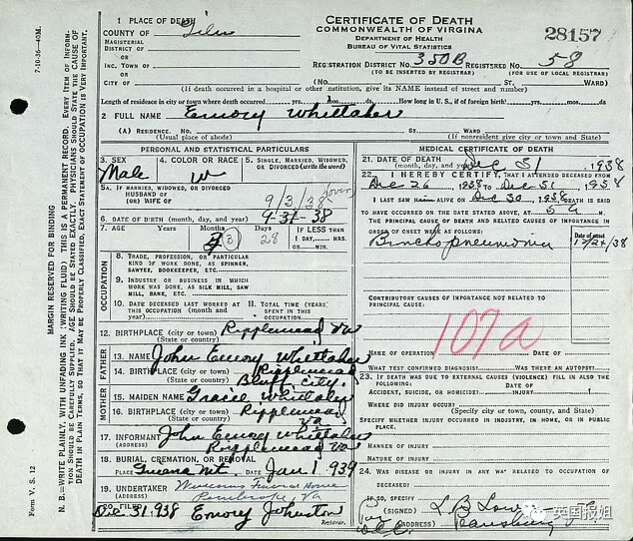 CERTIFICATE OF DEATH
COMMONWEALTH OF VIRGINIA
DEPARTMENT OF HEALTH
BUREAU OF VITAL STATISTICS
28157
1 PLACE OF DEATH
COUNTY OF Giles
MAGISTERIAL DISTRICT OF
OR
INC. TOWN OF
OR
CITY OF
REGISTRATION DISTRICT NO. 350B REGISTERED NO. 58
(TO BE INSERTED BY REGISTRAR) (FOR USE OF LOCAL REGISTRAR)
(No. ST. WARD)
(If death occurred in a hospital or other institution, give its NAME instead of street and number)
Length of residence in city or town where death occurred yrs. mos. ds. How long in U. S., if of foreign birth? yrs. mos. da.
2 FULL NAME Emory Whittaker
(A) RESIDENCE. No. ST. WARD
(Usual place of abode) (If nonresident give city or town and State)
PERSONAL AND STATISTICAL PARTICULARS
3. SEX
Male
4. COLOR OR RACE
W
5. SINGLE, MARRIED, WIDOWED, OR DIVORCED (write the word)
5A. IF MARRIED, WIDOWED, OR DIVORCED
HUSBAND OF
(OR) WIFE OF
9/3/38
6. DATE OF BIRTH (month, day, and year) 9-31-38
7. AGE Years Months Days
3 28
IF LESS THAN
1 DAY, HRS.
OR MIN.
OCCUPATION
8. TRADE, PROFESSION, OR PARTICULAR
KIND OF WORK DONE, AS SPINNER,
SAWYER, BOOKKEEPER, ETC.
9. INDUSTRY OR BUSINESS IN WHICH
WORK WAS DONE, AS SILK MILL, SAW
MILL, BANK, ETC.
10. DATE DECEASED LAST WORKED AT
THIS OCCUPATION (month and year)
11. TOTAL TIME (YEARS)
SPENT IN THIS
OCCUPATION
12. BIRTHPLACE (city or town) Ripplemead Va
(State or country)
FATHER
13. NAME John Emory Whittaker
14. BIRTHPLACE (city or town) Ripplemead
(State or country) Bluff City
MOTHER
15. MAIDEN NAME Whittaker
16. BIRTHPLACE (city or town) Ripplemead
(State or country) Va
17. INFORMANT John Emory Whittaker
(ADDRESS) Ripplemead Va
18. BURIAL, CREMATION, OR REMOVAL
PLACE DATE Jan 1 939
19. UNDERTAKER Funeral Home
(ADDRESS) Pembroke, Va
20. FILED
Dec 31 938 Emory Johnston
Registrar.
MEDICAL CERTIFICATE OF DEATH
21. DATE OF DEATH
(month, day, and year) Dec 31 1938
22. I HEREBY CERTIFY, THAT I ATTENDED DECEASED FROM
Dec 26 1938 TO Dec 31 1938
I LAST SAW H ALIVE ON Dec 30 1938 DEATH IS SAID
TO HAVE OCCURRED ON THE DATE STATED ABOVE, AT 5 M.
THE PRINCIPAL CAUSE OF DEATH AND RELATED CAUSES OF IMPORTANCE IN
ORDER OF ONSET WERE AS FOLLOWS:
Date of onset
Bronchopneumonia 12/24/38
CONTRIBUTORY CAUSES OF IMPORTANCE NOT RELATED TO
PRINCIPAL CAUSE:
107a
NAME OF OPERATION DATE OF
WHAT TEST CONFIRMED DIAGNOSIS? WAS THERE AN AUTOPSY?
23. IF DEATH WAS DUE TO EXTERNAL CAUSES (VIOLENCE) FILL IN ALSO THE
FOLLOWING:
ACCIDENT, SUICIDE, OR HOMICIDE? DATE OF INJURY
WHERE DID INJURY OCCUR?
(Specify city or town, county, and State)
SPECIFY WHETHER INJURY OCCURRED IN INDUSTRY, IN HOME, OR IN PUBLIC
PLACE.
MANNER OF INJURY
NATURE OF INJURY
24. WAS DISEASE OR INJURY IN ANY WAY RELATED TO OCCUPATION OF
DECEASED?
IF SO, SPECIFY
(SIGNED) L.B.
(ADDRESS) Pearisburg
7-10-36-40M.
MARGIN RESERVED FOR BINDING
N. B.—WRITE PLAINLY, WITH UNFADING INK (WRITING FLUID) THIS IS A PERMANENT RECORD. Every Item of Information Should be Carefully Supplied. AGE Should be Stated EXACTLY. PHYSICIANS Should State the CAUSE OF DEATH in Plain Terms, so That it May be Properly Classified. Exact Statement of OCCUPATION is Very Important.
Form V. S. 12
英国报姐